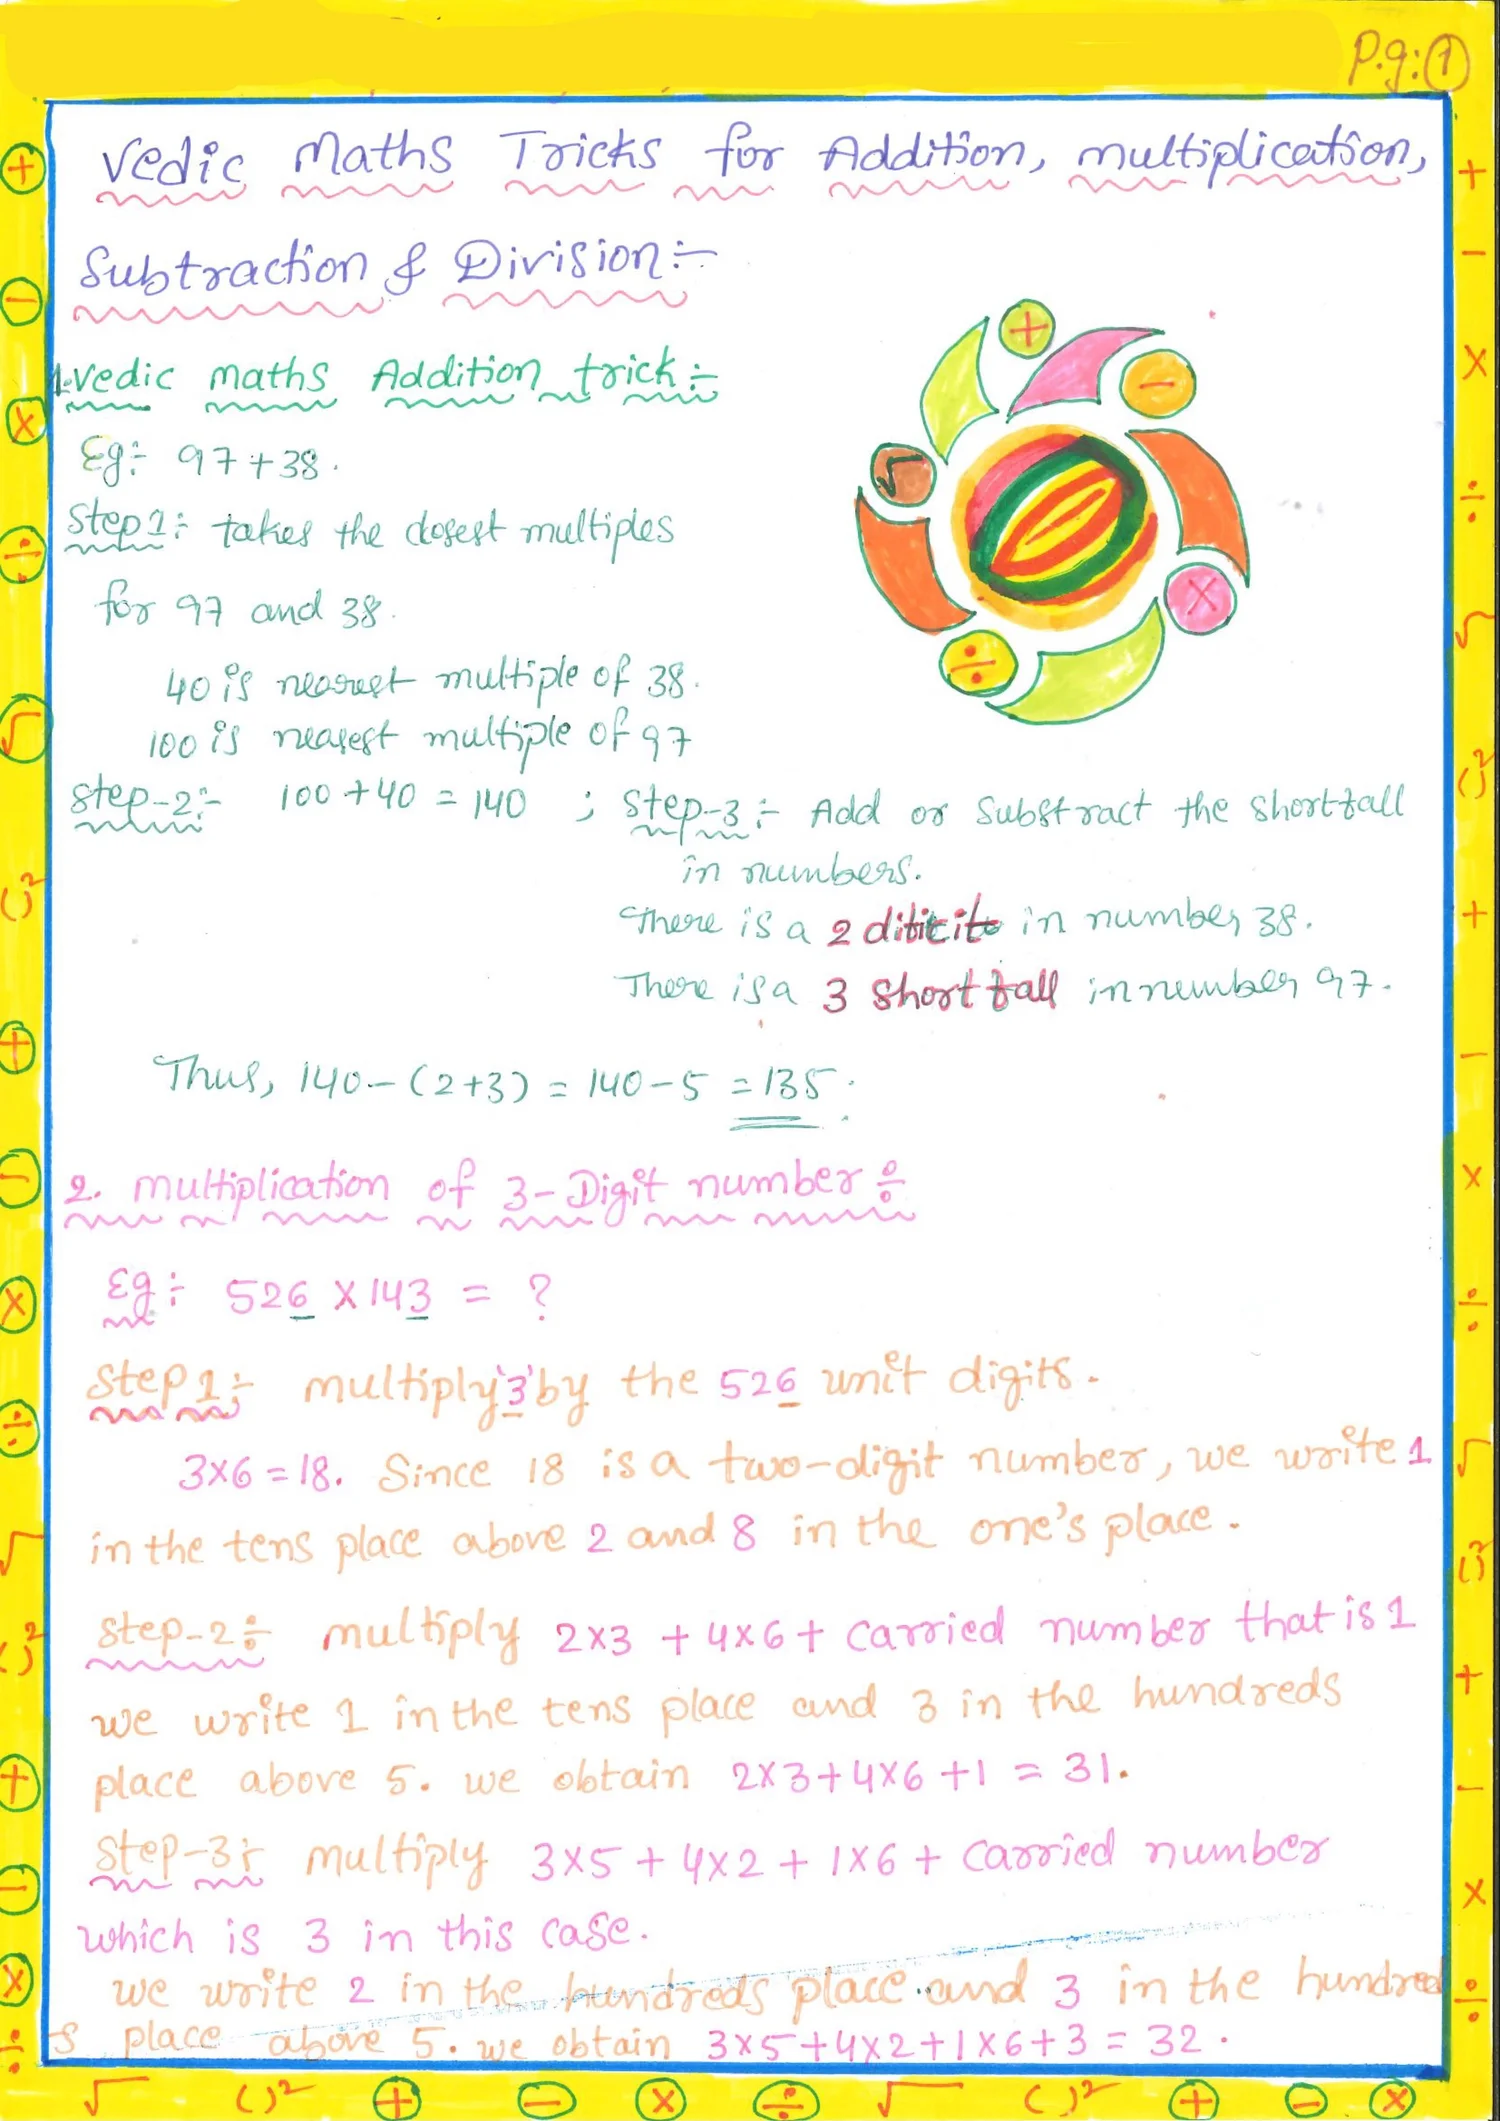 P.g:①
Vedic Maths Tricks for Addition, multiplication,
Subtraction & Division:-
1. Vedic maths Addition trick:-
Eg:- 97+38.
Step1:- takes the closest multiples
for 97 and 38.
40 is nearest multiple of 38.
100 is nearest multiple of 97
Step-2:- 100+40=140 ; Step-3:- Add or Substract the shortfall
in numbers.
There is a 2 in number 38.
There is a 3 Short fall in number 97.
Thus, 140-(2+3) = 140-5 = 135.
2. multiplication of 3-Digit number:-
Eg:- 526 X 143 = ?
Step1:- multiply '3' by the 526 unit digits.
3x6=18. Since 18 is a two-digit number, we write 1
in the tens place above 2 and 8 in the one's place.
Step-2:- multiply 2x3 + 4x6 + carried number that is 1
we write 1 in the tens place and 3 in the hundreds
place above 5. we obtain 2x3+4x6+1 = 31.
Step-3:- multiply 3x5 + 4x2 + 1x6 + carried number
which is 3 in this case.
we write 2 in the hundreds place and 3 in the hundred
s place above 5. we obtain 3x5+4x2+1x6+3 = 32.